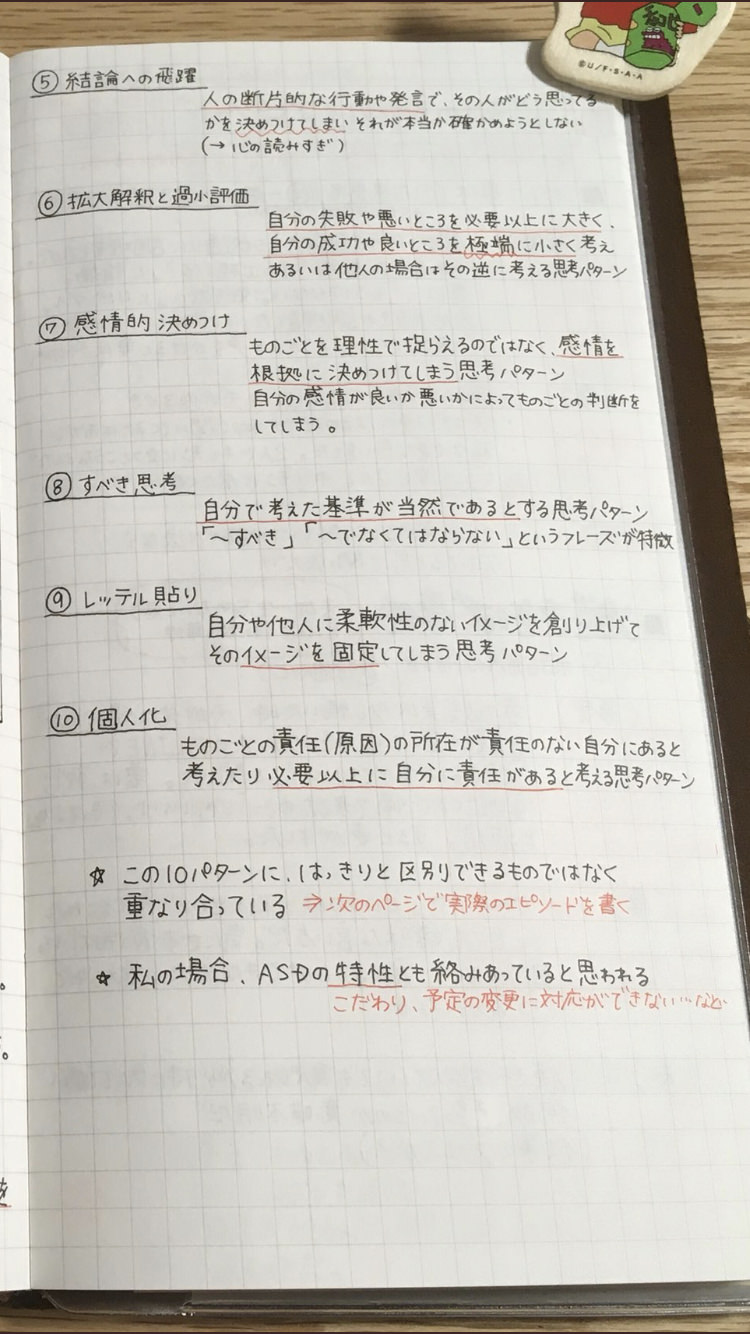 ©U/F・S・A・A
⑤ 結論への飛躍
人の断片的な行動や発言で、その人がどう思ってる
かを決めつけてしまい それが本当か確かめようとしない
(→ 心の読みすぎ)
⑥ 拡大解釈と過小評価
自分の失敗や悪いところを必要以上に大きく、
自分の成功や良いところを極端に小さく考え
あるいは他人の場合はその逆に考える思考パターン
⑦ 感情的 決めつけ
ものごとを理性で捉らえるのではなく、感情を
根拠に決めつけてしまう思考パターン
自分の感情が良いか悪いかによってものごとの判断を
してしまう。
⑧ すべき思考
自分で考えた基準が当然であるとする思考パターン
「〜すべき」「〜でなくてはならない」というフレーズが特徴
⑨ レッテル貼り
自分や他人に柔軟性のないイメージを創り上げて
そのイメージを固定してしまう思考パターン
⑩ 個人化
ものごとの責任(原因)の所在が責任のない自分にあると
考えたり必要以上に自分に責任があると考える思考パターン
☆ この10パターンに、はっきりと区別できるものではなく
重なり合っている ⇒次のページで実際のエピソードを書く
☆ 私の場合、ASDの特性とも絡みあっていると思われる
こだわり、予定の変更に対応ができない…など